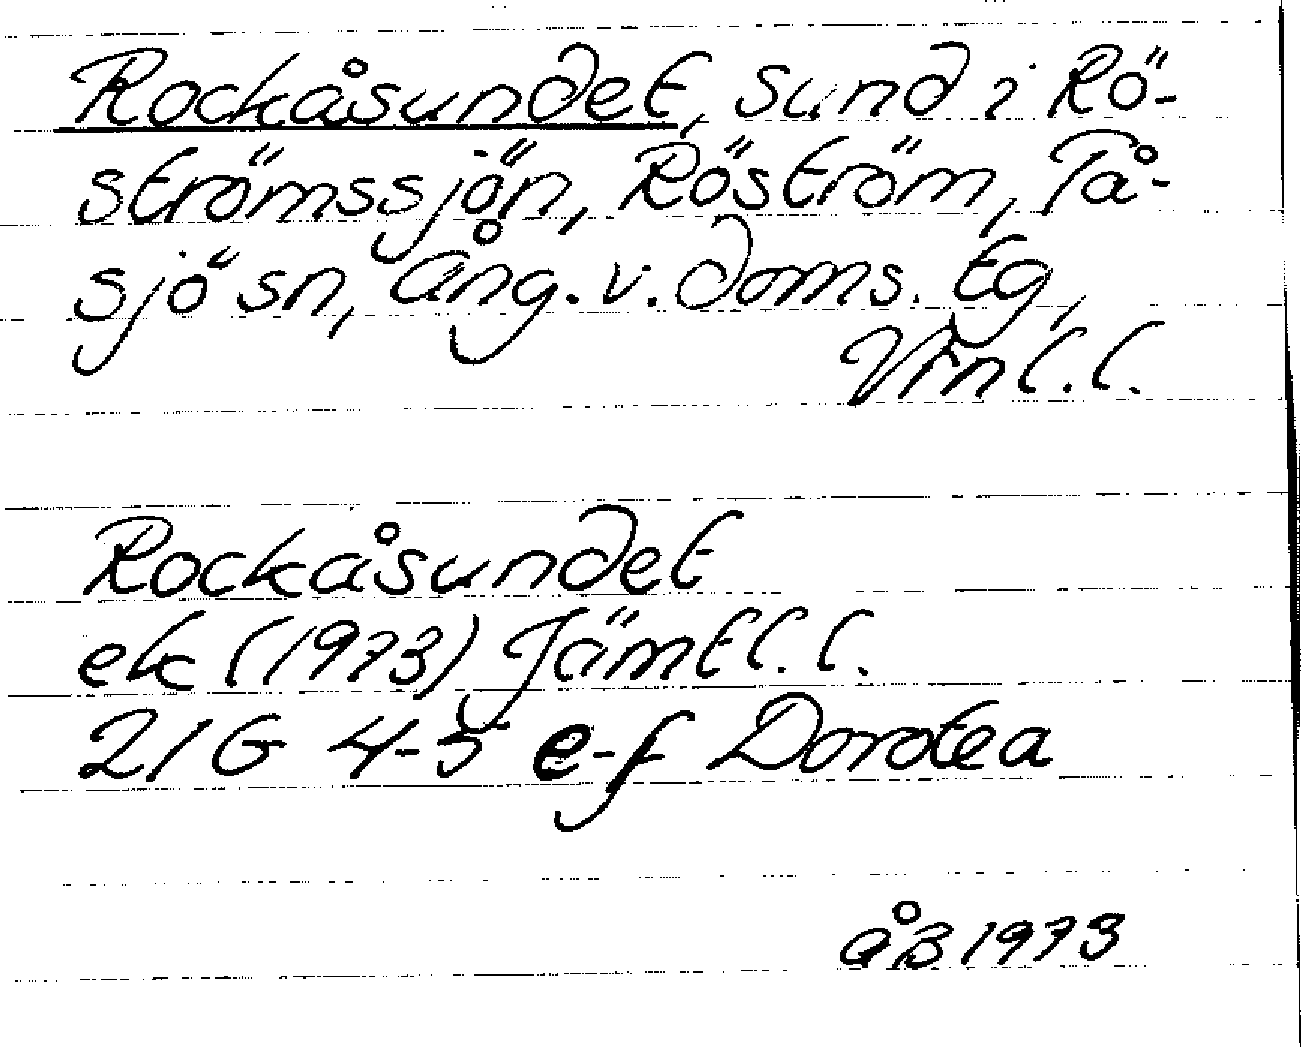 Rockåsundet, sund i Rö-
strömssjön, Röström, Tå-
sjö sn, Ång. v. doms. tg,
Vrnl. l.
Rockåsundet
ek (1973) Jämtl. l.
21G 4-5 e-f Dorotea
ÅB 1973